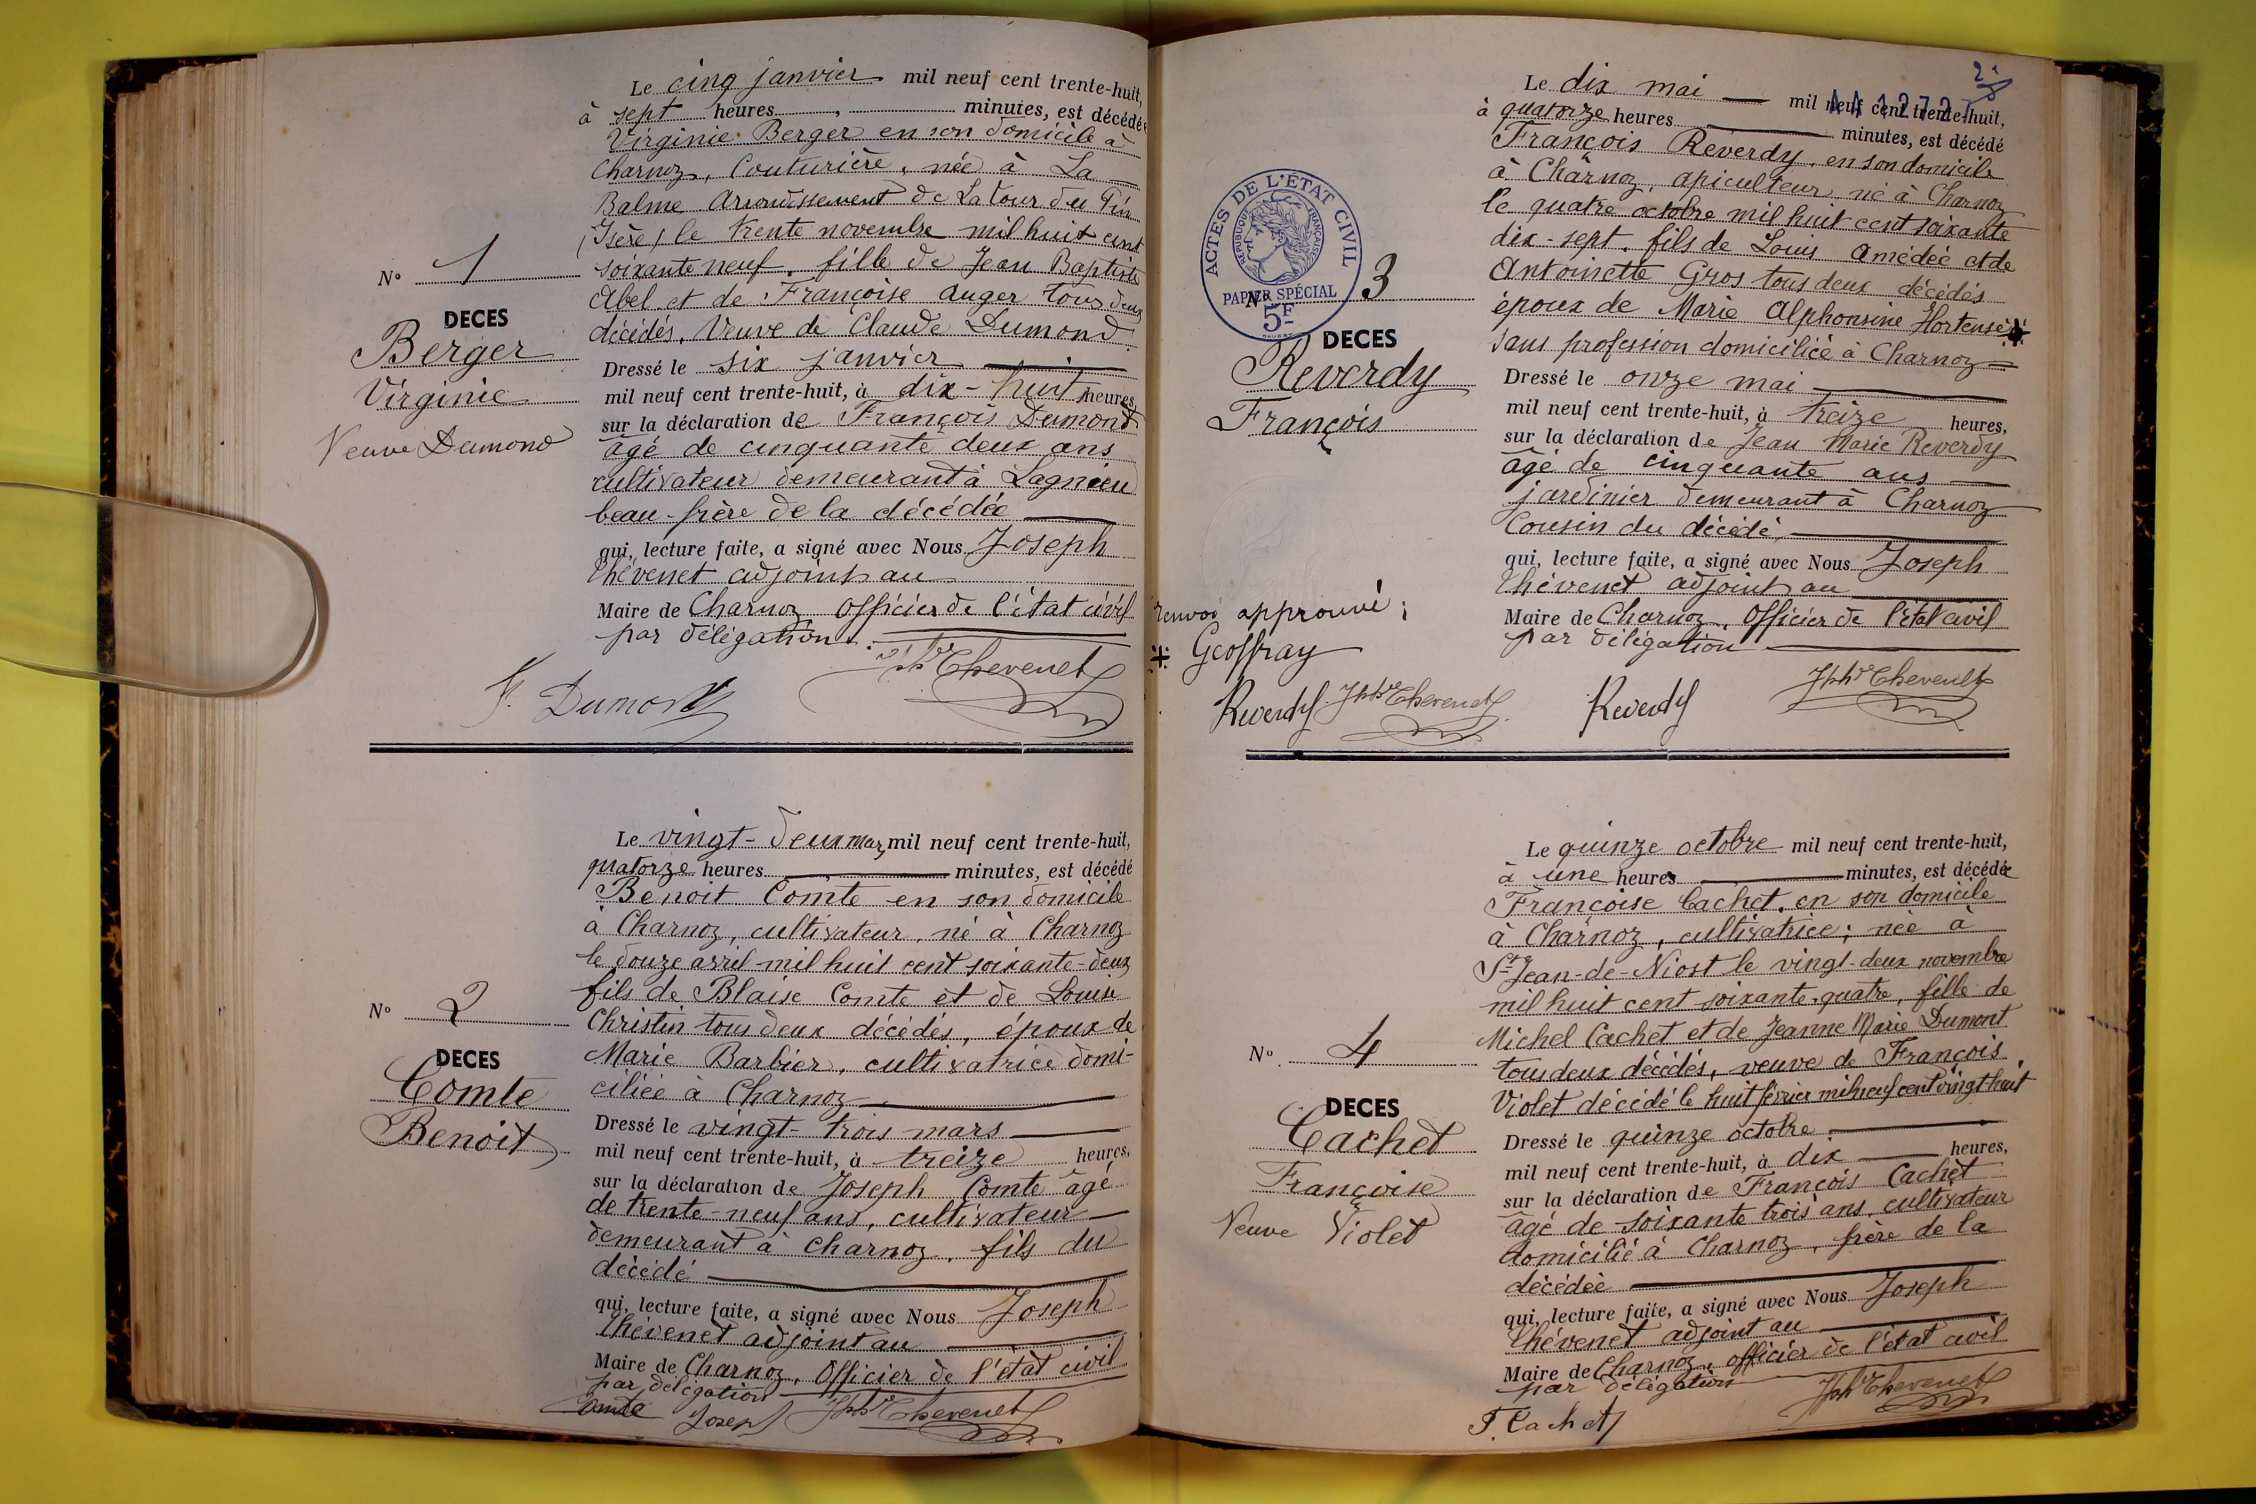 Le cinq janvier mil neuf cent trente-huit,
à sept heures, minutes, est décédée
Virginie Berger en son domicile à
Charnoz, Couturière, née à La
Balme arrondissement de La tour du Pin
(Isère) le trente novembre mil huit cent
soixante neuf, fille de Jean Baptiste
Abel et de Françoise Auger tous deux
décédés, Veuve de Claude Dumond
N° 1
DECES
Berger
Virginie
Veuve Dumond
Dressé le six janvier
mil neuf cent trente-huit, à dix-huit heures,
sur la déclaration de François Dumond
âgé de cinquante deux ans
cultivateur demeurant à Lagnieu
beau-frère de la décédée
qui, lecture faite, a signé avec Nous Joseph
Thévenet adjoint au
Maire de Charnoz Officier de l'état civil
par délégation.
F. Dumond
Jph Thevenet
Le vingt-deux mars mil neuf cent trente-huit,
quatorze heures minutes, est décédé
Benoit Comte en son domicile
à Charnoz, cultivateur, né à Charnoz
le douze avril mil huit cent soixante-deux
fils de Blaise Comte et de Louise
Christin tous deux décédés, époux de
Marie Barbier, cultivatrice domi-
ciliée à Charnoz
N° 2
DECES
Comte
Benoit
Dressé le vingt-trois mars
mil neuf cent trente-huit, à treize heures,
sur la déclaration de Joseph Comte âgé
de trente-neuf ans, cultivateur
demeurant à Charnoz, fils du
décédé
qui, lecture faite, a signé avec Nous Joseph
Thévenet adjoint au
Maire de Charnoz, Officier de l'état civil
par délégation
Comte Joseph Jph Thevenet
2
Le dix mai mil neuf cent trente-huit,
à quatorze heures minutes, est décédé
François Reverdy, en son domicile
à Charnoz, apiculteur, né à Charnoz
le quatre octobre mil huit cent soixante
dix-sept, fils de Louis Amédée et de
Antoinette Gros tous deux décédés
époux de Marie Alphonsine Hortense *
sans profession domiciliée à Charnoz
ACTES DE L'ÉTAT CIVIL
RÉPUBLIQUE FRANÇAISE
PAPIER SPÉCIAL
5F
N° 3
DECES
Reverdy
François
Dressé le onze mai
mil neuf cent trente-huit, à treize heures,
sur la déclaration de Jean Marie Reverdy
âgé de cinquante ans
jardinier demeurant à Charnoz
Cousin du décédé,
qui, lecture faite, a signé avec Nous Joseph
Thévenet adjoint au
Maire de Charnoz, Officier de l'état civil
par délégation
renvoi approuvé :
* Geoffray
Reverdy Jph Thevenet
Reverdy Jph Thevenet
Le quinze octobre mil neuf cent trente-huit,
à une heures minutes, est décédée
Françoise Cachet, en son domicile
à Charnoz, cultivatrice ; née à
St Jean-de-Niost le vingt-deux novembre
mil huit cent soixante-quatre, fille de
Michel Cachet et de Jeanne Marie Dumont
tous deux décédés, veuve de François
Violet décédé le huit février mil neuf cent vingt huit
N° 4
DECES
Cachet
Françoise
Veuve Violet
Dressé le quinze octobre
mil neuf cent trente-huit, à dix heures,
sur la déclaration de François Cachet
âgé de soixante trois ans, cultivateur
domicilié à Charnoz, frère de la
décédée
qui, lecture faite, a signé avec Nous Joseph
Thévenet adjoint au
Maire de Charnoz, officier de l'état civil
par délégation
F. Cachet
Jph Thevenet